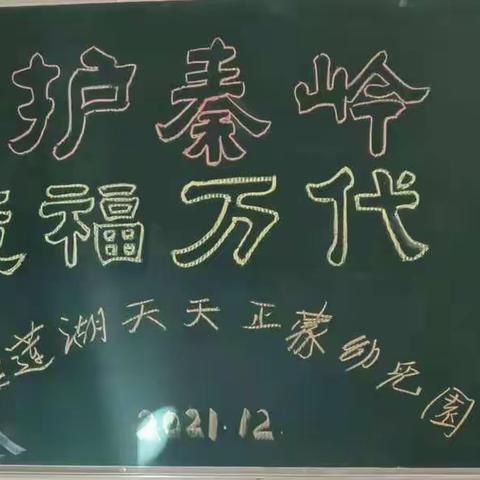 护秦岭
福万代
莲湖天天正蒙幼兒園
2021.12.